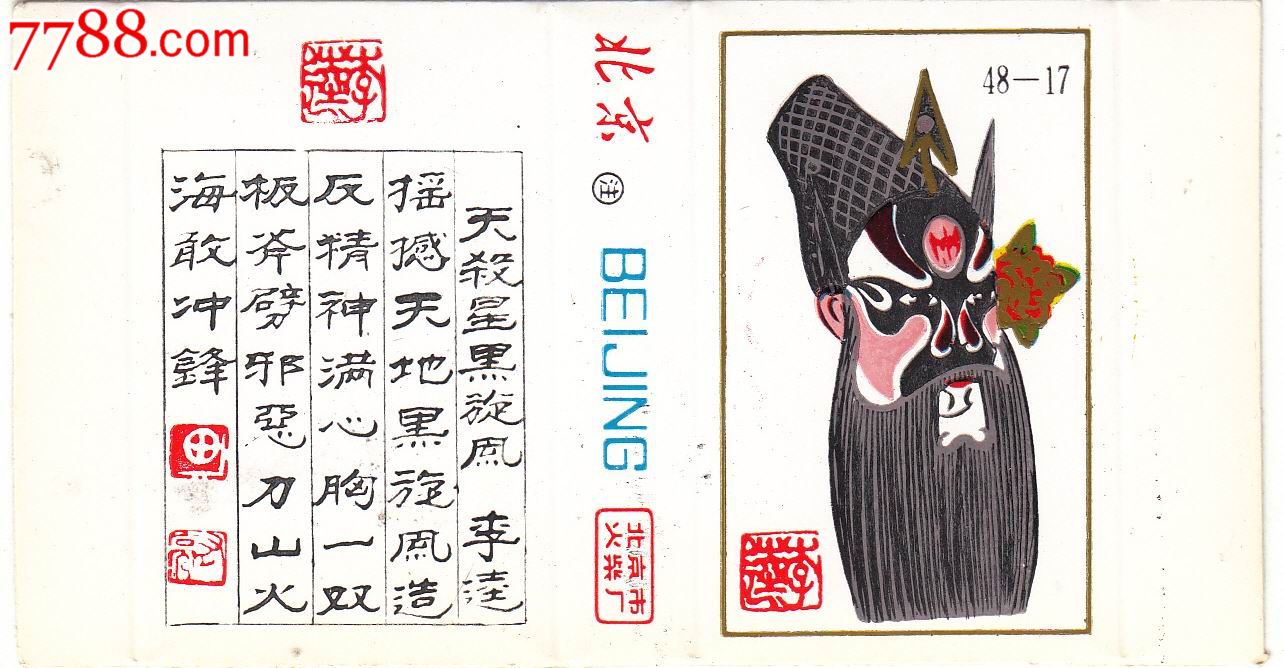 7788.com
李逵
天殺星黑旋風 李逵
摇撼天地黑旋風造
反精神满心胸一双
板斧劈邪惡刀山火
海敢冲鋒
北京
注
BEIJING
北京市
火柴厂
48—17
李逵